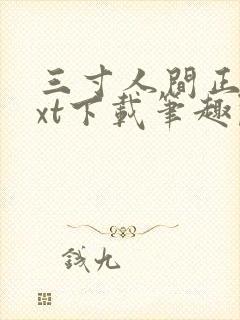 三寸人間正
xt下載筆趣
錢九